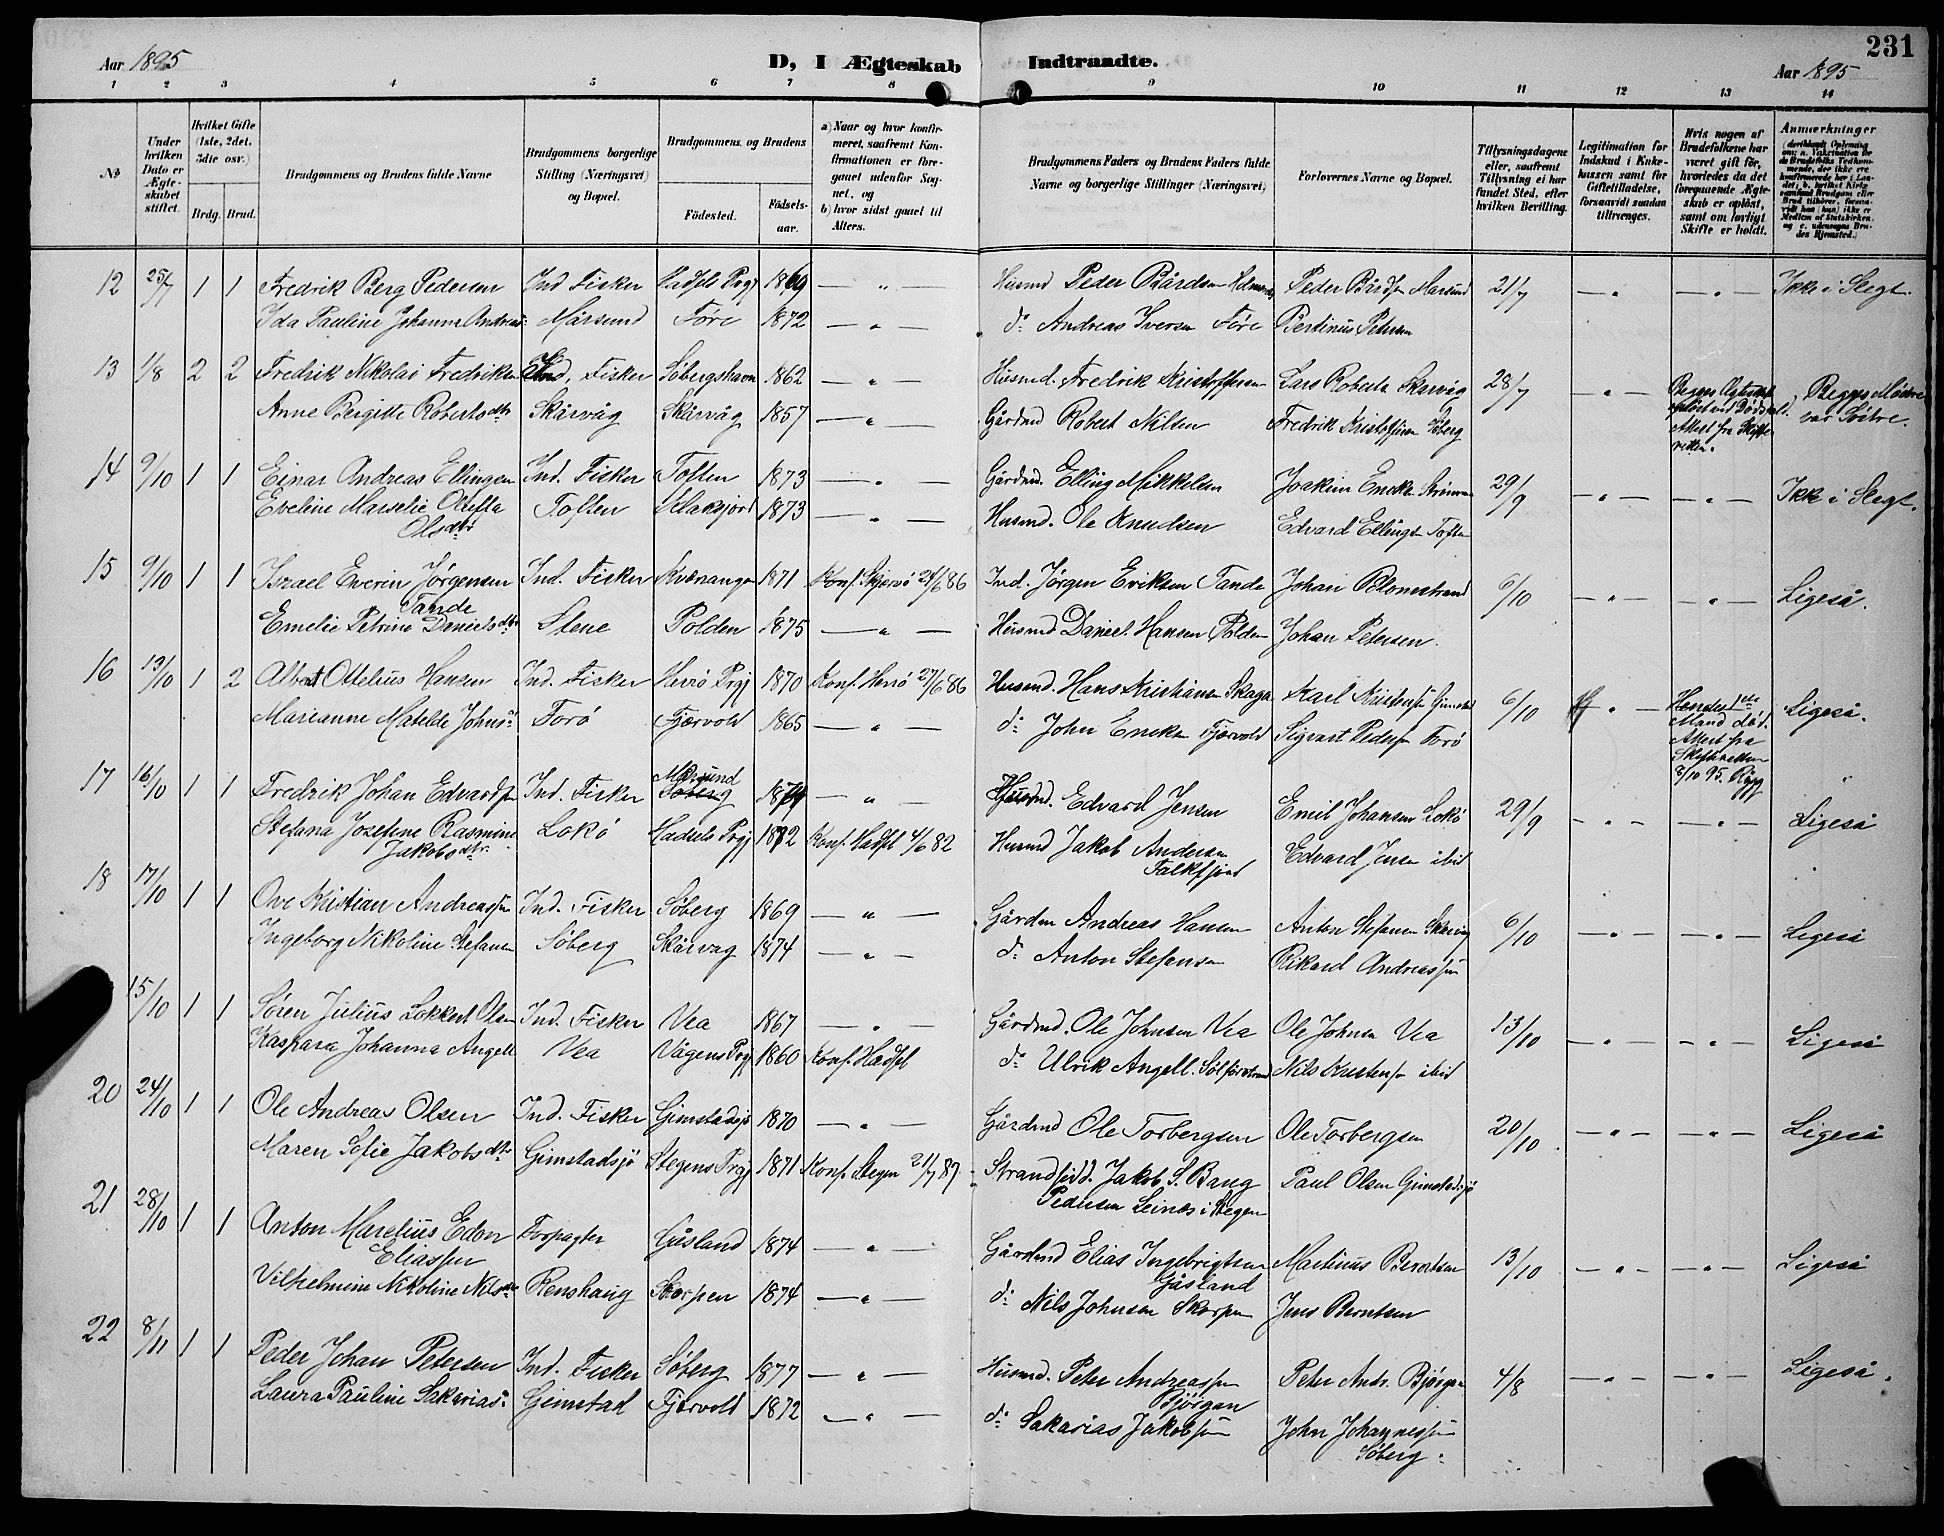 231
Aar 1895
D, I Ægteskab Indtraadte.
Aar 1895
1 2 3 4 5 6 7 8 9 10 11 12 13 14
№
Under hvilken Dato er Ægteskabet stiftet.
Hvilket Gifte (1ste, 2det, 3dte osv.)
Brdg. Brud.
Brudgommens og Brudens fulde Navne
Brudgommens borgerlige Stilling (Næringsvei) og Bopæl.
Brudgommens og Brudens
Fødested.
Fødselsaar.
a) Naar og hvor konfirmeret, saafremt Konfirmationen er foregaaet udenfor Sognet, og
b) hvor sidst gaaet til Alters.
Brudgommens Faders og Brudens Faders fulde Navne og borgerlige Stillinger (Næringsvei)
Forlovernes Navne og Bopæl.
Tillysningsdagene eller, saafremt Tillysning ei har fundet Sted, efter hvilken Bevilling.
Legitimation for Indskud i Enkekassen samt for Giftetilladelse, forsaavidt saadan tiltrænges.
Hvis nogen af Brudefolkene har været gift før, hvorledes da det foregaaende Ægteskab er opløst, samt om lovligt Skifte er holdt.
Anmerkninger
12 25/7 1 1 Fredrik Berg Pedersen Ind Fisker Hadsels Prgj 1869 — " — Husmd Peder Bårdsen Peder Bårds Marsund 21/7 — " — — " — Ikke i Slegt.
Ida Pauline Johanna Andreas: Mårsund Føre 1872 — " — do Andreas Iversen Føre Bertinus Petersen
13 1/8 2 2 Fredrik Nikolai Fredriksen Fisker Søbergshavn 1862 — " — Husmd. Fredrik Kristoffersen Lars Roberts Skårvåg 28/7 — " — Begges Ægteskab opløst ved Dødsfald. Attest fra Skifteretten. Begges Mødre var Søstre.
Anne Bergitte Robertsdtr Skårvåg Skårvåg 1857 — " — Gårdmd Robert Nilsen Fredrik Kristoffersen Søberg
14 9/10 1 1 Einar Andreas Ellingsen Ind. Fisker Toften 1873 — " — Gårdmd. Elling Mikkelsen Joakim 29/9 — " — — " — Ikke i Slegt.
Eveline Marselie Oluffa Olsdtr Toften 1873 — " — Husmd. Ole Knudsen Edvard Ellings Toften
15 9/10 1 1 Israel Everin Jørgensen Tande Ind. Fisker Kvænangen 1871 Konf. Skjervø 24/6 86 Ind. Jørgen Eriksen Tande Johan 6/10 — " — — " — Ligeså.
Emelie Petrine Danielsdtr Stene Polden 1875 — " — Husmd Daniel Hansen Polden Johan Petersen.
16 13/10 1 2 Albert Ottelius Hansen Ind. Fisker Herrø Prgj 1870 Konf. Herrø 27/6 86 Husmd. Hans Kristiansen Skaga Karl Kristens Gimstad 6/10 — " — Hendes 1ste Mand død. Attest fra Skifteretten 8/10 95. Ligeså.
Marianne Matelde Johns: Forø Fjærvold 1865 — " — do John Fjærvold Sigvart Peders Forø
17 16/10 1 1 Fredrik Johan Edvardsen Ind. Fisker Mårsund Søberg 1874 — " — Husmd. Edvard Jensen Emil Johansen Lokø 29/9 — " — — " — Ligeså
Stefana Josefine Rasmine Jakobsdtr. Lokø Hadsels Prgj 1872 Konf. Hadsel 4/6 82 Husmd Jakob Andersen Falkfjord Edvard Jensen ibid
18 17/10 1 1 Ove Kristian Andreassen Ind. Fisker Søberg 1869 — " — Gårdm Andreas Hansen Anton Stefansen Skårvåg 6/10 — " — — " — Ligeså
Ingeborg Nikoline Stefansen Søberg Skårvåg 1874 — " — do Anton Stefansen Rikard Andreassen
15/10 1 1 Søren Julius Lokkert Olsen Ind. Fisker Vea 1867 — " — Gårdmd. Ole Johnsen Vea Ole Johnsen Vea 13/10 — " — — " — Ligeså
Kaspara Johanna Angell Vea Vågens Prgj 1860 Konf. Hadsel do Ulrik Angell. Nils Kristens ibid
20 24/10 1 1 Ole Andreas Olsen Ind. Fisker Gimstadsjø 1870 — " — Gårdmd Ole Torbergsen Ole Torbergsen 20/10 — " — — " — Ligeså
Maren Sofie Jakobsdtr Gimstadsjø Stegens Prgj 1871 Konf. Stegen 21/7 87. Strandsidd. Jakob S. Bang Pedersen Leines i Stegen Paul Olsen Gimstadsjø
21 28/10 1 1 Anton Marelius Edon Eliassen Forpagter Gåsland 1874 — " — Gårdmd Elias Ingebrigtsen Gåsland Martinus Berntsen 13/10 — " — — " — Ligeså
Vilhelmine Nikoline Nilsdtr Renshaug Skorpen 1874 — " — do Nils Johnsen Skorpen Jens Berntsen
22 8/11 1 1 Peder Johan Petersen Ind. Fisker Søberg 1877 — " — Husmd. Peter Andreassen Bjørgan Peter Andr. Bjørgan 4/8 — " — — " — Ligeså.
Laura Pauline Sakarias: Gimstad Fjærvold 1872 — " — do Sakarias Jakobsen John Johannessen Søberg.